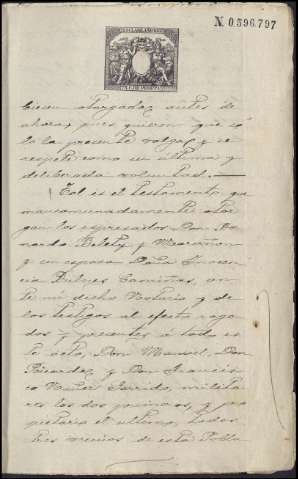 N. 0.396.797
bieren otorgadas antes de
ahora, pues quieren que só
lo la presente valga, y se
respete como su última y
deliberada voluntad.
Tal es el testamento, que
mancomunadamente otor
gan los expresados Don
nardo y Marañon
y su esposa Doña Inocen
cia an
te mi dicho Notario y de
los testigos al efecto roga
dos y presentes á todo es
te acto, Don Manuel, Don
Ricardo, y Don Francis
co Garrido, milita
res los dos primeros, y pro
pietario el ultimo, todos
tres vecinos de esta Pobla